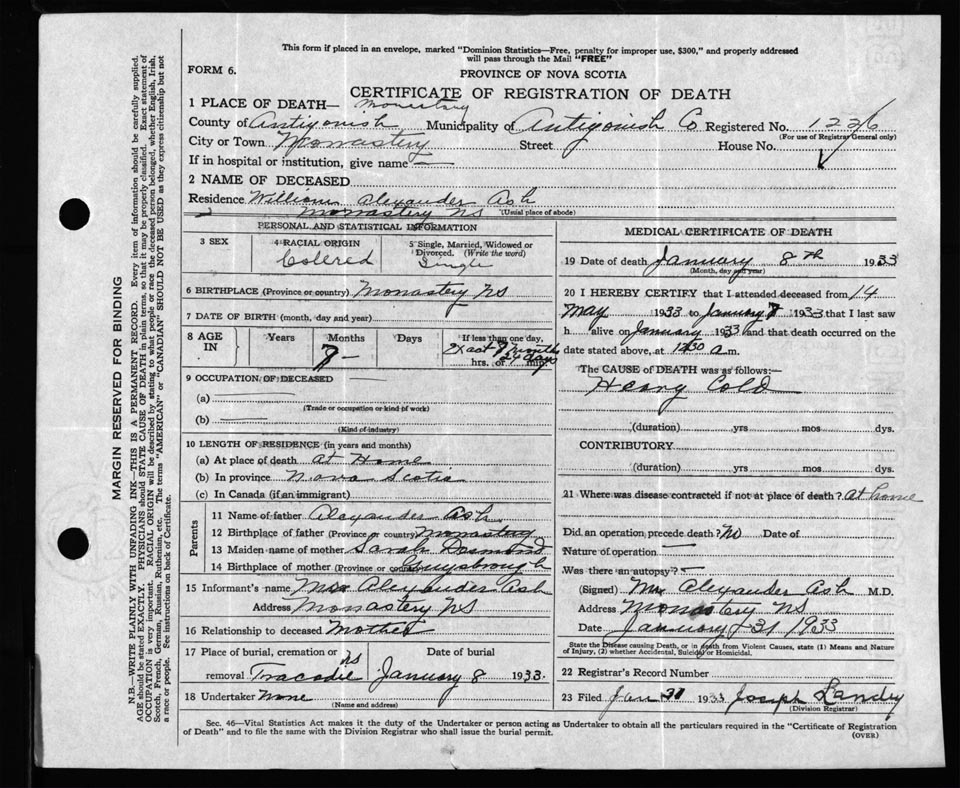 This form if placed in an envelope, marked "Dominion Statistics—Free, penalty for improper use, $300," and properly addressed
will pass through the Mail "FREE"
FORM 6.
PROVINCE OF NOVA SCOTIA
CERTIFICATE OF REGISTRATION OF DEATH
1 PLACE OF DEATH— Monastery
County of Antigonish Municipality of Antigonish Co Registered No. 1226
(For use of Registrar General only)
City or Town Monastery Street House No.
If in hospital or institution, give name —
2 NAME OF DECEASED
Residence William Alexander Ash
Monastery NS (Usual place of abode)
PERSONAL AND STATISTICAL INFORMATION
3 SEX
4 RACIAL ORIGIN
Colered
5 Single, Married, Widowed or
Divorced. (Write the word)
Single
6 BIRTHPLACE (Province or country) Monastery NS
7 DATE OF BIRTH (month, day and year)
8 AGE IN
Years
Months
7 —
Days
If less than one day,
Exact 7 Months
24 days
hrs. or min.
9 OCCUPATION OF DECEASED
(a)
(Trade or occupation or kind of work)
(b)
(Kind of industry)
10 LENGTH OF RESIDENCE (in years and months)
(a) At place of death At Home
(b) In province Nova Scotia
(c) In Canada (if an immigrant)
Parents
11 Name of father Alexander Ash
12 Birthplace of father (Province or country) Monastery
13 Maiden name of mother Sarah Desmond
14 Birthplace of mother (Province or country) Guysbrough
15 Informant's name Mrs Alexander Ash
Address Monastery NS
16 Relationship to deceased Mother
17 Place of burial, cremation or
Tracadie NS
Date of burial
January 8 1933.
18 Undertaker None
(Name and address)
MEDICAL CERTIFICATE OF DEATH
19 Date of death January 8th 1933
(Month, day and year)
20 I HEREBY CERTIFY that I attended deceased from 14
May 1933 to January 7 1933 that I last saw
h alive on January 1933 and that death occurred on the
date stated above, at 1230 a.m.
The CAUSE of DEATH was as follows:—
Heavy Cold
(duration) yrs mos dys.
CONTRIBUTORY
(duration) yrs. mos dys.
21 Where was disease contracted if not at place of death? At home
Did an operation precede death? No Date of
Nature of operation —
Was there an autopsy? —
(Signed) Mrs Alexander Ash M.D.
Address Monastery NS
Date January 31 1933
State the Disease causing Death, or in death from Violent Causes, state (1) Means and Nature
of Injury, (2) whether Accidental, Suicidal or Homicidal.
22 Registrar's Record Number
23 Filed Jan 31 1933 Joseph Landry
(Division Registrar)
Sec. 46—Vital Statistics Act makes it the duty of the Undertaker or person acting as Undertaker to obtain all the particulars required in the "Certificate of Registration
of Death" and to file the same with the Division Registrar who shall issue the burial permit.
(OVER)
MARGIN RESERVED FOR BINDING
N.B.—WRITE PLAINLY WITH UNFADING INK—THIS IS A PERMANENT RECORD. Every item of information should be carefully supplied.
AGE should be stated EXACTLY. PHYSICIANS should STATE CAUSE OF DEATH in plain terms, so that it may be properly classified. Exact statement of
OCCUPATION is very important. RACIAL ORIGIN will be described by stating to what people or race the deceased person belonged, whether English, Irish,
Scotch, French, German, Russian, Ruthenian, etc. The terms "AMERICAN" or "CANADIAN" SHOULD NOT BE USED as they express citizenship but not
a race or people. See instructions on back of Certificate.